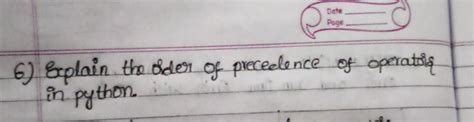 Date
Page
6) Explain the order of precedence of operators
in python.